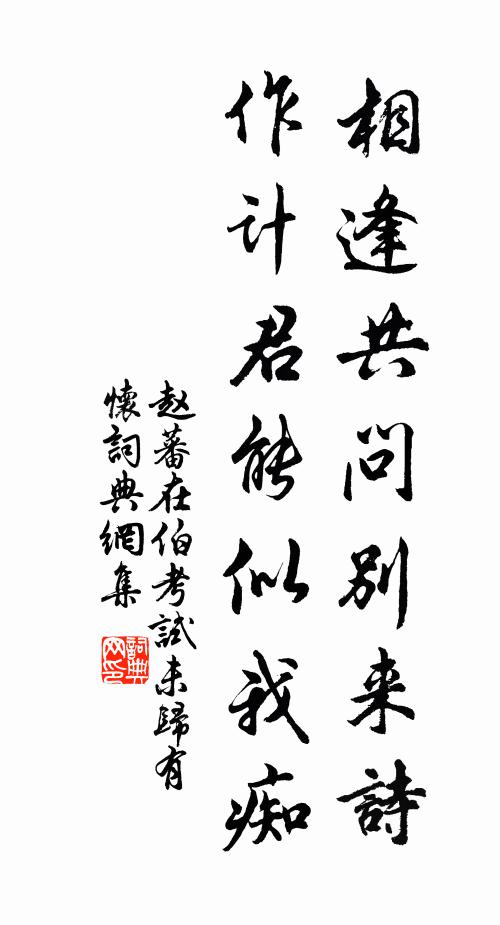 相逢共問别来詩
作计君能似我痴
赵蕃在伯考試未歸有
懷詞典網集
詞典
网印